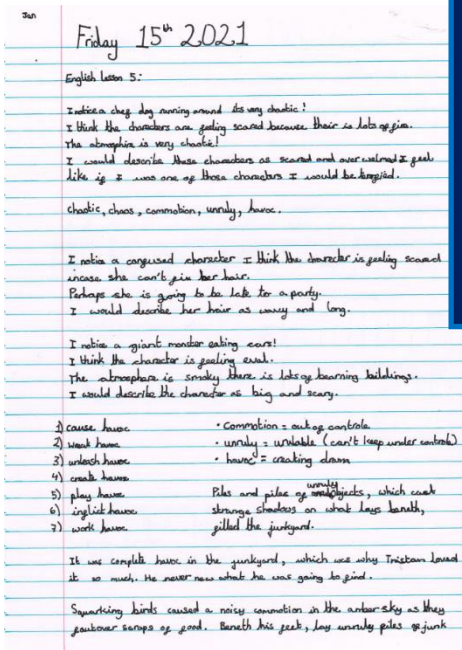 Jan
Friday 15th 2021
English lesson 5:
I notice a chef dog running around its very chaotic!
I think the characters are feeling scared because their is lots of fire.
The atmosphire is very chaotic!
I would describe these characters as scared and over welmed I feel
like if I was one of those characters I would be terrified.
chaotic, chaos, commotion, unruly, havoc.
I notice a confused character I think the character is feeling scared
incase she can't fix her hair.
Perhaps she is going to be late for a party.
I would describe her hair as wavy and long.
I notice a giant monster eating cars!
I think the character is feeling eval.
The atmosphere is smoky there is lots of bearning buildings.
I would describe the character as big and scary.
1) cause havoc
2) havoc
3) unleash havoc
4) create havoc
5) play havoc
6) inflict havoc
7) work havoc
• Commotion = out of controle
• unruly = (can't keep under controle)
• havoc = creating dram
Piles and piles of unruly objects, which cast
strange shadows on what lays beneth,
filled the junkyard.
It was complete havoc in the junkyard, which was why Tristan loved
it so much. He never new what he was going to find.
Squarking birds caused a noisy commotion in the amber sky as they
scraps of food. Beneth his feet, lay unruly piles of junk